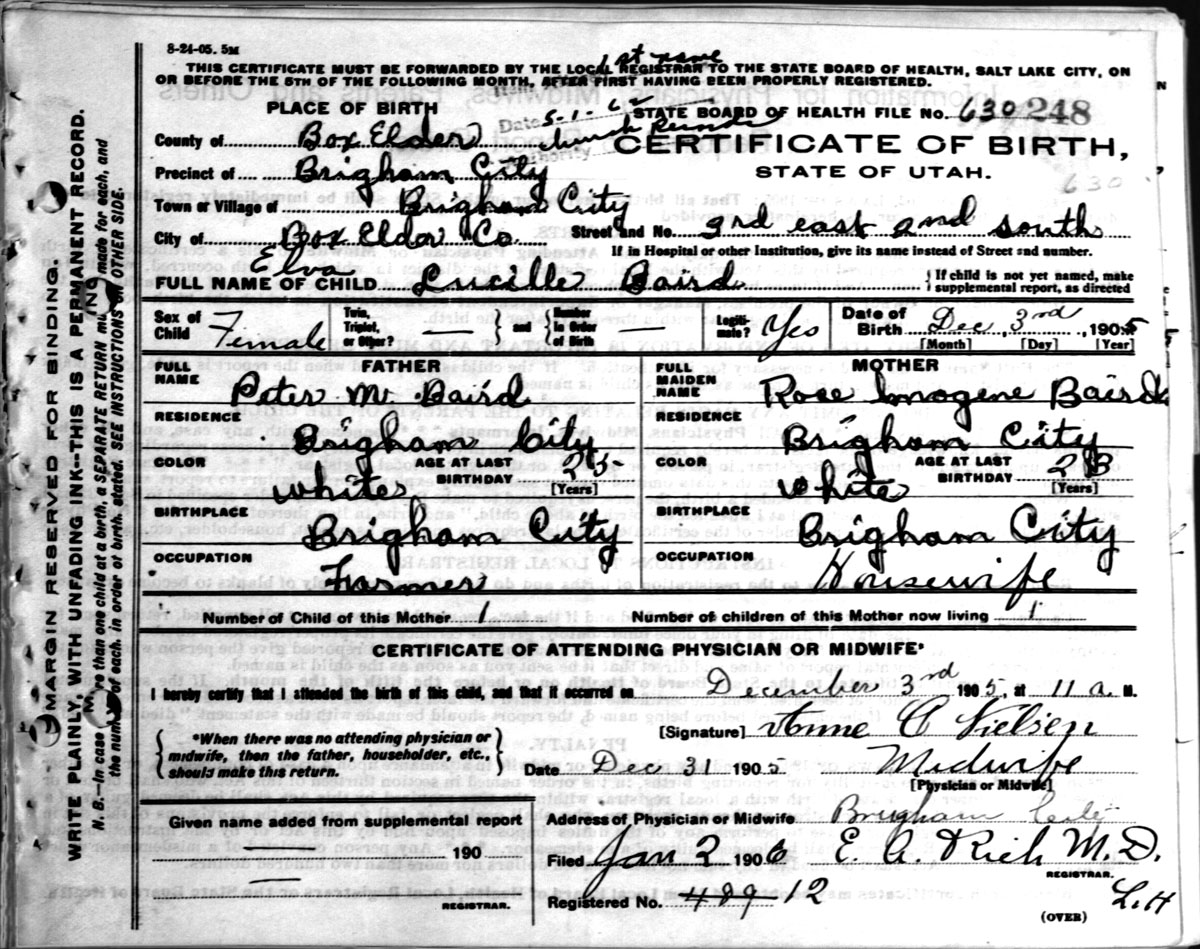 8-24-05. 5M
1st name
THIS CERTIFICATE MUST BE FORWARDED BY THE LOCAL REGISTRAR TO THE STATE BOARD OF HEALTH, SALT LAKE CITY, ON
OR BEFORE THE 5TH OF THE FOLLOWING MONTH, AFTER FIRST HAVING BEEN PROPERLY REGISTERED.
PLACE OF BIRTH
Date 5-1-62
STATE BOARD OF HEALTH FILE No. 630 248
County of Box Elder
church Records
CERTIFICATE OF BIRTH,
Precinct of Brigham City
STATE OF UTAH.
630
Town or Village of Brigham City
City of Box Elder Co
Street and No. 3rd east 2nd south
If in Hospital or other Institution, give its name instead of Street and number.
Elva
FULL NAME OF CHILD Lucille Baird
} If child is not yet named, make supplemental report, as directed
Sex of Child Female
Twin, Triplet, or Other? — } and { Number in Order of Birth —
Legitimate? Yes
Date of Birth Dec 3rd, 1905
[Month] [Day] [Year]
FATHER
MOTHER
FULL NAME Peter M. Baird
FULL MAIDEN NAME Rose Imogene Baird
RESIDENCE Brigham City
RESIDENCE Brigham City
COLOR white
AGE AT LAST BIRTHDAY 25 [Years]
COLOR white
AGE AT LAST BIRTHDAY 23 [Years]
BIRTHPLACE Brigham City
BIRTHPLACE Brigham City
OCCUPATION Farmer
OCCUPATION Housewife
Number of Child of this Mother 1
Number of children of this Mother now living 1
CERTIFICATE OF ATTENDING PHYSICIAN OR MIDWIFE*
I hereby certify that I attended the birth of this child, and that it occurred on December 3rd 1905, at 11 a. M.
{ *When there was no attending physician or midwife, then the father, householder, etc., should make this return. }
[Signature] Anne C Nielsen
Date Dec 31 1905. Midwife
[Physician or Midwife]
Given name added from supplemental report
Address of Physician or Midwife Brigham City
190
Filed Jan 2 1906 E. A. Rich M.D.
REGISTRAR.
—
REGISTRAR.
Registered No. 489 12
L.H
(OVER)
MARGIN RESERVED FOR BINDING.
WRITE PLAINLY, WITH UNFADING INK—THIS IS A PERMANENT RECORD.
N. B.—In case of more than one child at a birth, a SEPARATE RETURN must be made for each, and
the number of each, in order of birth, stated. SEE INSTRUCTIONS ON OTHER SIDE.